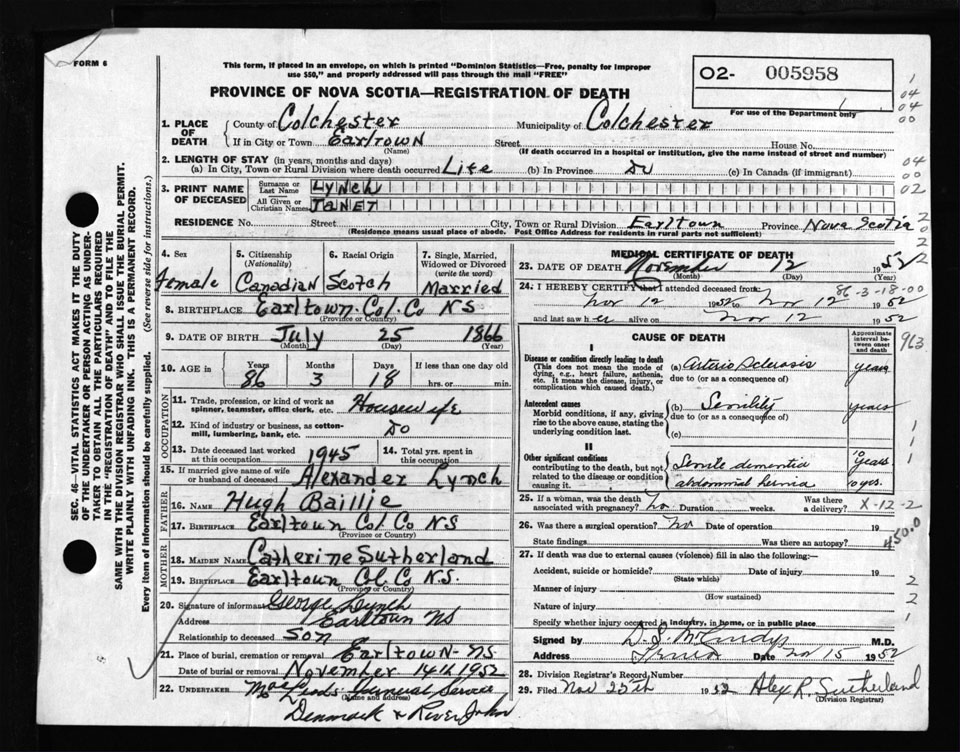 FORM 6
This form, if placed in an envelope, on which is printed "Dominion Statistics—Free, penalty for improper
use $50," and properly addressed will pass through the mail "FREE"
PROVINCE OF NOVA SCOTIA—REGISTRATION OF DEATH
O2- 005958
For use of the Department only
1
04
04
00
04
00
02
2
0
2
SEC. 46—VITAL STATISTICS ACT MAKES IT THE DUTY
OF THE UNDERTAKER OR PERSON ACTING AS UNDER-
TAKER TO OBTAIN ALL THE PARTICULARS REQUIRED
IN THE "REGISTRATION OF DEATH" AND TO FILE THE
SAME WITH THE DIVISION REGISTRAR WHO SHALL ISSUE THE BURIAL PERMIT.
WRITE PLAINLY WITH UNFADING INK. THIS IS A PERMANENT RECORD.
Every item of information should be carefully supplied. (See reverse side for instructions.)
1. PLACE OF DEATH
County of Colchester Municipality of Colchester
If in City or Town Earltown Street House No.
(Name) (If death occurred in a hospital or institution, give the name instead of street and number)
2. LENGTH OF STAY (in years, months and days)
(a) In City, Town or Rural Division where death occurred Life (b) In Province Do (c) In Canada (if immigrant)
3. PRINT NAME OF DECEASED
Surname or Last Name LYNCH
All Given or Christian Names JANET
RESIDENCE No. Street City, Town or Rural Division Earltown Province Nova Scotia
(Residence means usual place of abode. Post Office Address for residents in rural parts not sufficient)
4. Sex
Female
5. Citizenship
(Nationality)
Canadian
6. Racial Origin
Scotch
7. Single, Married,
Widowed or Divorced
(write the word)
Married
8. BIRTHPLACE Earltown. Col. Co NS
(Province or Country)
9. DATE OF BIRTH July 25 1866
(Month) (Day) (Year)
10. AGE in Years Months Days If less than one day old
86 3 18 hrs. or min.
OCCUPATION
11. Trade, profession, or kind of work as
spinner, teamster, office clerk, etc. Housewife
12. Kind of industry or business, as cotton-
mill, lumbering, bank, etc. Do
13. Date deceased last worked
at this occupation 1945
14. Total yrs. spent in
this occupation
15. If married give name of wife
or husband of deceased Alexander Lynch
FATHER
16. NAME Hugh Baillie
17. BIRTHPLACE Earltown Col. Co NS
(Province or Country)
MOTHER
18. MAIDEN NAME Catherine Sutherland
19. BIRTHPLACE Earltown Col. Co N.S.
(Province or Country)
20. Signature of informant George Lynch
Address Earltown NS
Relationship to deceased Son
21. Place of burial, cremation or removal Earltown-NS.
Date of burial or removal November 14th 1952
22. UNDERTAKER MacLeods Funeral Service
(Name and address)
Denmark & River John
MEDICAL CERTIFICATE OF DEATH
23. DATE OF DEATH November 12 1952
(Month) (Day) (Year)
24. I HEREBY CERTIFY that I attended deceased from
86-3-18-00
Nov 12 1952 to Nov 12 1952
and last saw her alive on Nov 12 1952
CAUSE OF DEATH
Approximate
interval be-
tween onset
and death
963
I
Disease or condition directly leading to death
(This does not mean the mode of
dying, e.g., heart failure, asthenia,
etc. It means the disease, injury, or
complication which caused death.)
(a) Arterio Sclerosis years
due to (or as a consequence of)
Antecedent causes
Morbid conditions, if any, giving
rise to the above cause, stating the
underlying condition last.
(b) Senility years
due to (or as a consequence of)
(c)
II
Other significant conditions
contributing to the death, but not
related to the disease or condition
causing it.
Senile dementia 10 years
abdominal hernia 10 yrs.
1
1
1
25. If a woman, was the death Was there
associated with pregnancy? No Duration weeks. a delivery? X-12-2
26. Was there a surgical operation? No Date of operation 19
State findings Was there an autopsy?
450.0
27. If death was due to external causes (violence) fill in also the following:—
Accident, suicide or homicide? Date of injury 19
(State which)
Manner of injury
(How sustained)
Nature of injury
Specify whether injury occurred in industry, in home, or in public place
2
2
1
Signed by D. S. McCurdy M.D.
Address Truro Date Nov 15 1952
28. Division Registrar's Record Number
29. Filed Nov 25th 1952 Alex R. Sutherland
(Division Registrar)